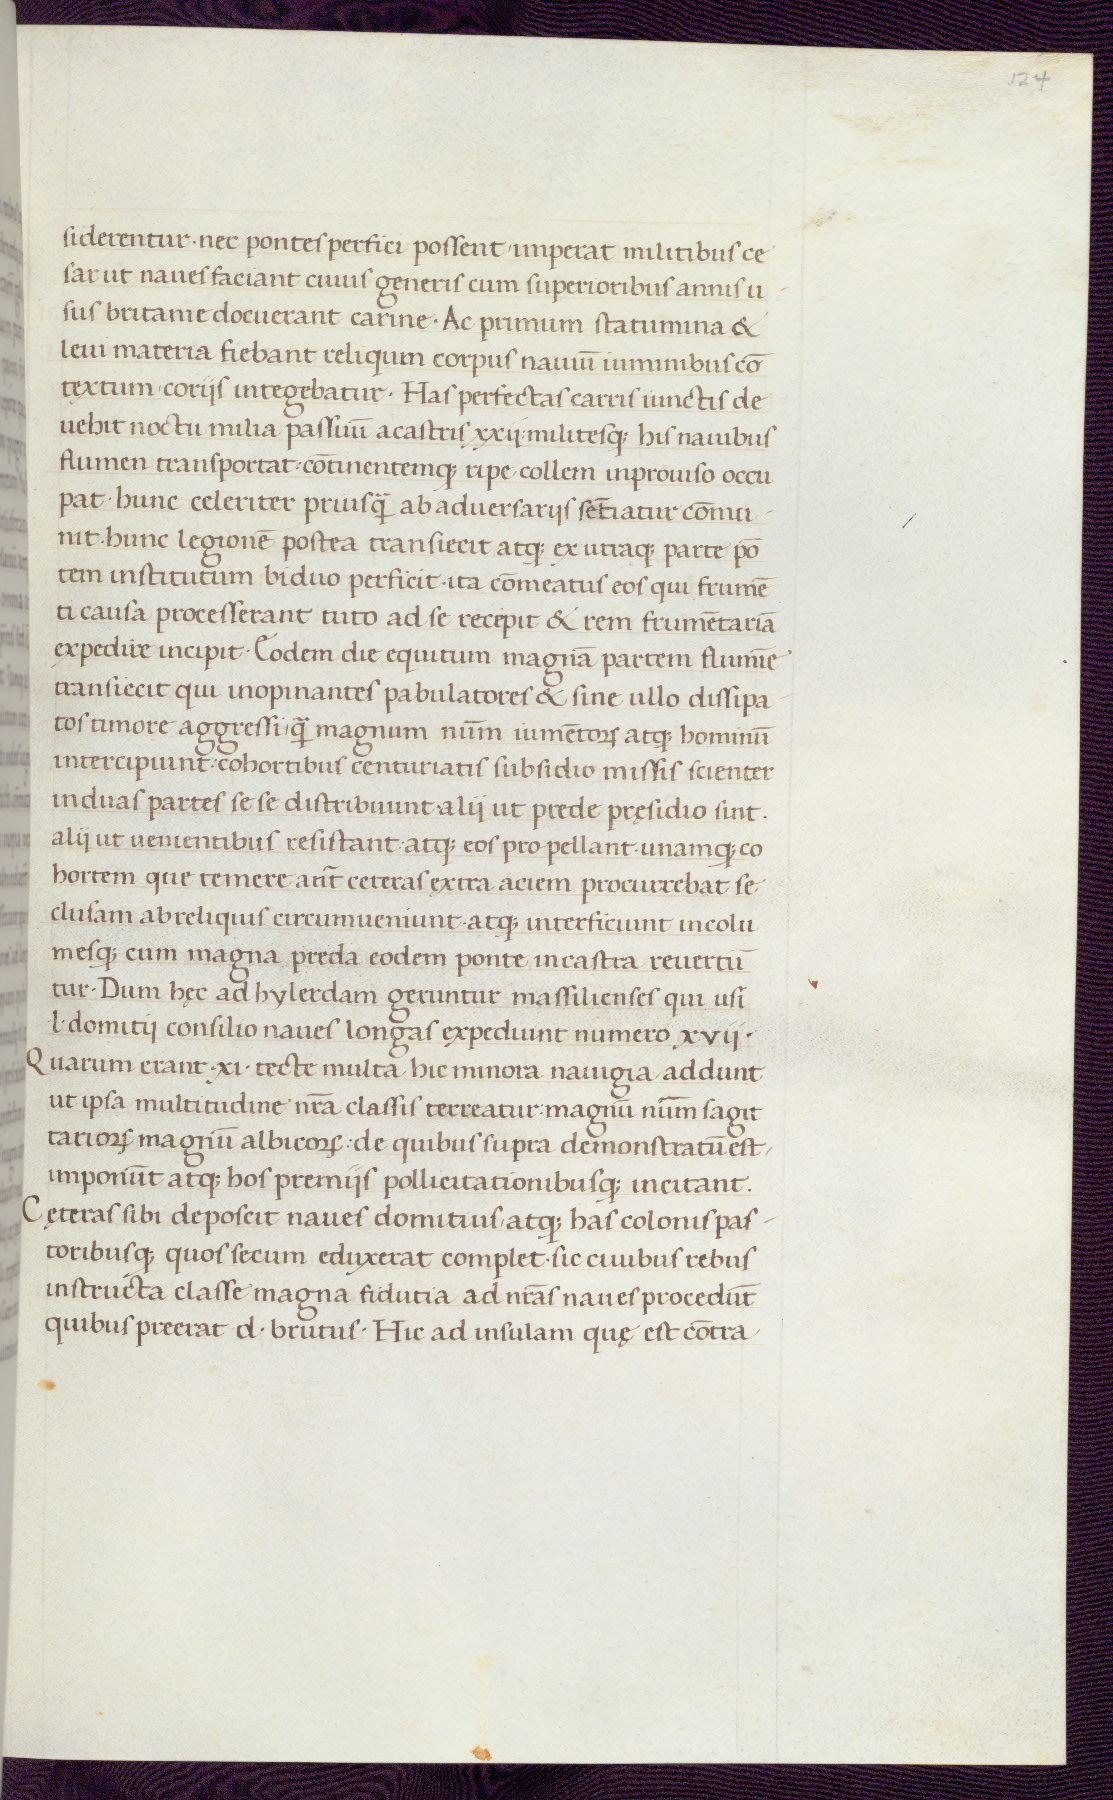 124
siderentur · nec pontes perfici possent · imperat militibus ce
sar ut naues faciant cuius generis cum superioribus annis u-
sus britanie docuerant carine · Ac primum statumina &
leui materia fiebant reliqum corpus nauiū iuminibus cō
textum · corijs integebatur · Has perfectas carris iunctis de
uehit noctu milia passuū a castris xxij · militesq; his nauibus
flumen transportat · cōtinentemq; ripe · collem inprouiso occu
pat · hunc celeriter priusq̄ ab aduersarijs sētiatur cōmu-
nit · hunc legionē postea transiecit atq; ex utraq; parte pō
tem institutum biduo perficit · ita cōmeatus eos qui frumē
ti causa processerant tuto ad se recepit & rem frumētariā
expedire incipit · Eodem die equitum magnā partem flumīe
transiecit qui inopinantes pabulatores & sine ullo dissipa-
tos timore aggressi · q̄ magnum nūm iumētorꝝ atq; hominū
intercipiunt · cohortibus centuriatis subsidio missis scienter
in duas partes se se distribuunt · alij ut prede pręsidio sint ·
alij ut uenientibus resistant · atq; eos propellant · unamq; co
hortem que temere an̄t ceteras extra aciem procurrebat se
clusam ab reliquis circumueniunt · atq; interficiunt incolu
mesq; cum magna preda eodem ponte in castra reuertū
tur · Dum hęc ad hylerdam geruntur massilienses qui usi
l · domitij consilio naues longas expediunt numero xvij ·
Quarum erant · xi · tecte multa hic minora nauigia addunt
ut ipsa multitudine nr̄a classis terreatur : magnū nūm sagit
tariorꝝ magnū albicorꝝ : de quibus supra demonstratū est,
imponūt atq; hos premijs pollicitationibusq; incitant ·
Cęteras sibi deposcit naues domitius, atq; has colonis pas-
toribusq; quos secum eduxerat complet · sic cuuibus rebus
instructa classe magna fidutia ad nr̄as naues procedūt
quibus preerat d · brutus · Hic ad insulam quę est cōtra